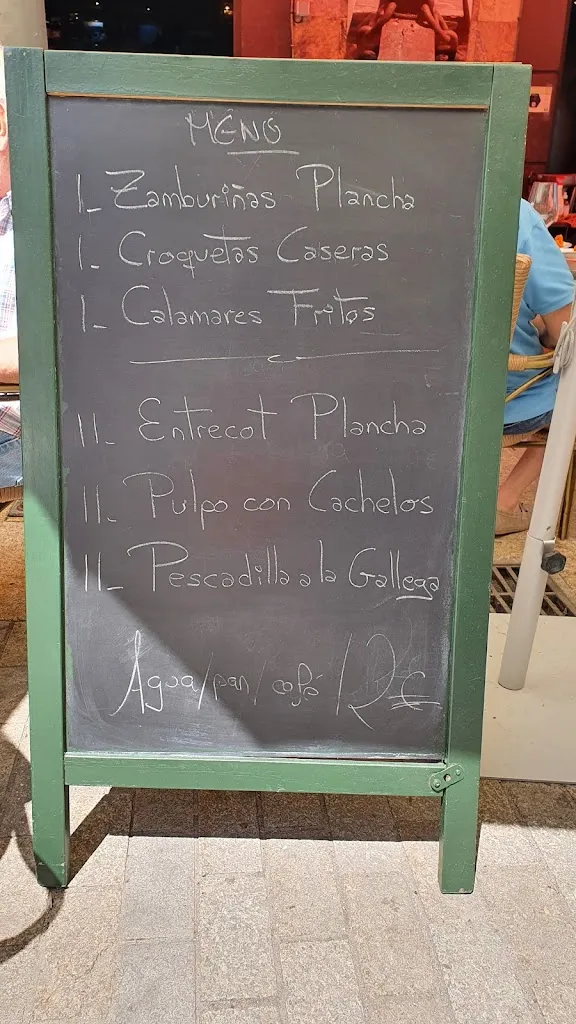 MENÚ
I_ Zamburiñas Plancha
I_ Croquetas Caseras
I_ Calamares Fritos
II_ Entrecot Plancha
II_ Pulpo con Cachelos
II_ Pescadilla a la Gallega
Agua/pan/café/12€